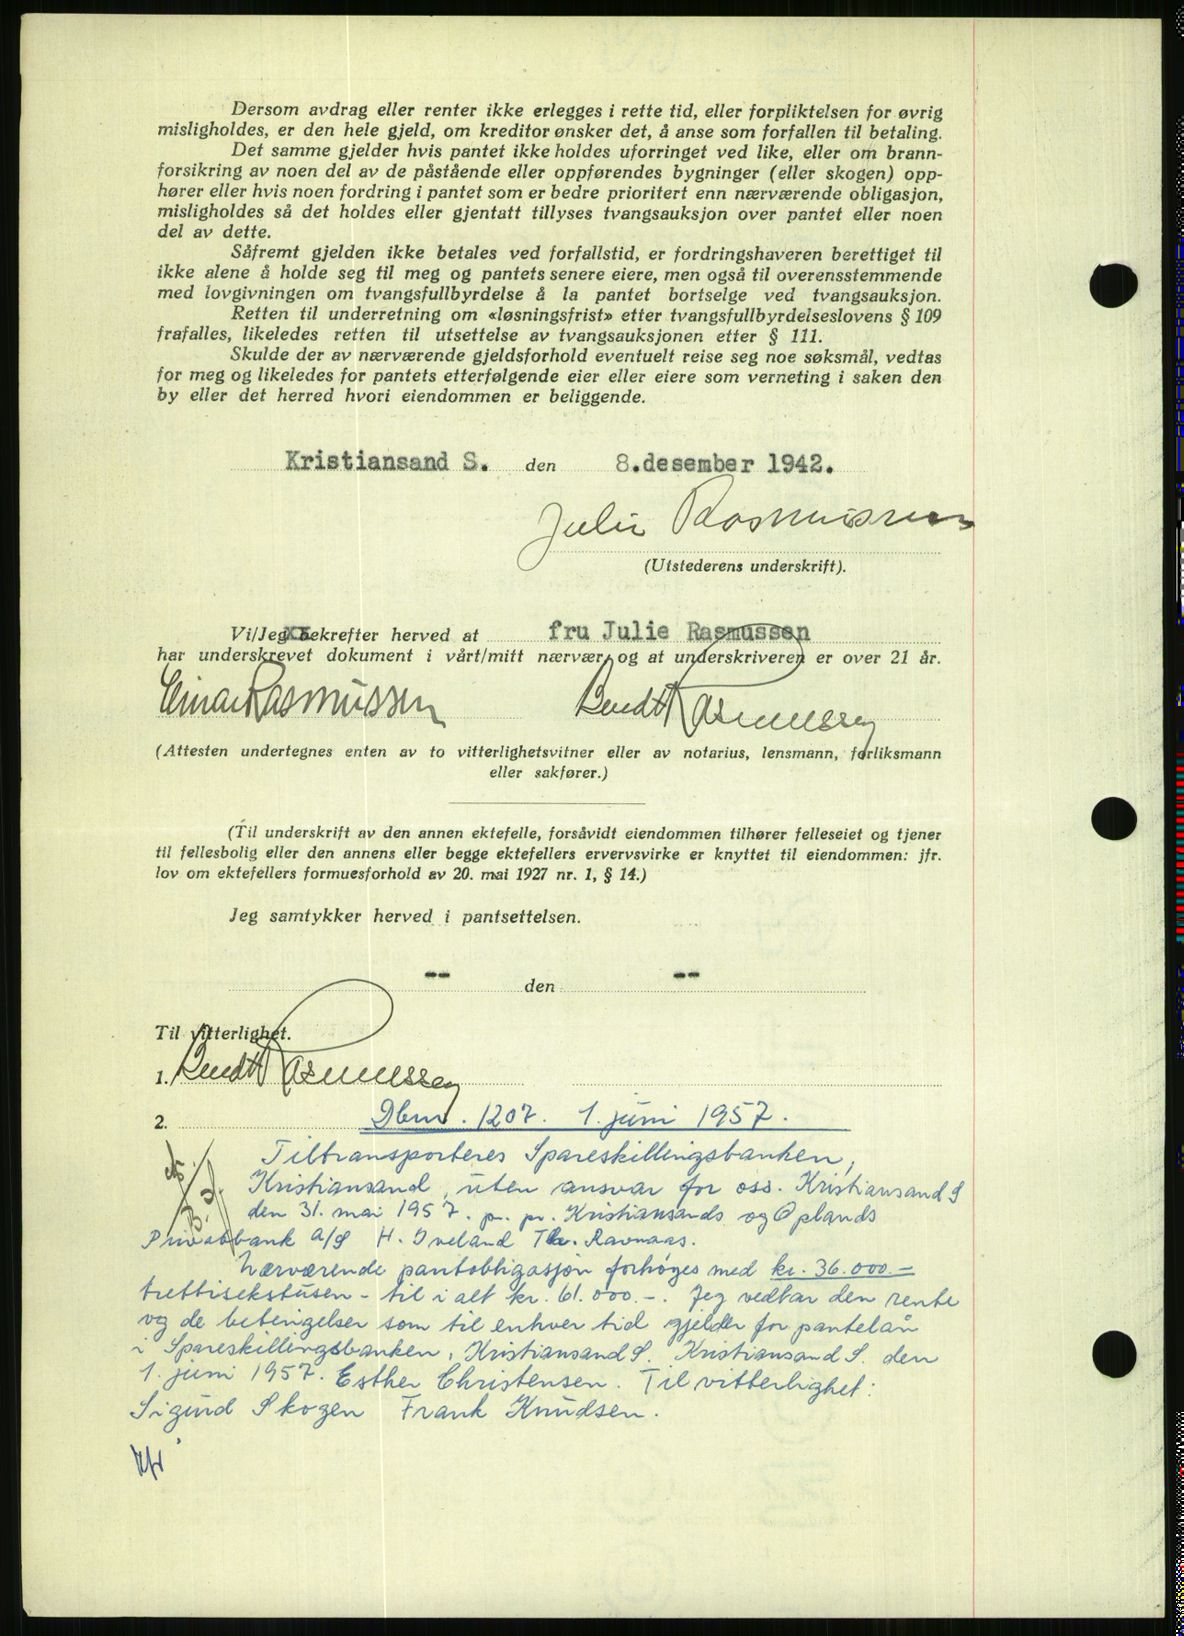 Dersom avdrag eller renter ikke erlegges i rette tid, eller forpliktelsen for øvrig
misligholdes, er den hele gjeld, om kreditor ønsker det, å anse som forfallen til betaling.
Det samme gjelder hvis pantet ikke holdes uforringet ved like, eller om brann-
forsikring av noen del av de påstående eller oppførendes bygninger (eller skogen) opp-
hører eller hvis noen fordring i pantet som er bedre prioritert enn nærværende obligasjon,
misligholdes så det holdes eller gjentatt tillyses tvangsauksjon over pantet eller noen
del av dette.
Såfremt gjelden ikke betales ved forfallstid, er fordringshaveren berettiget til
ikke alene å holde seg til meg og pantets senere eiere, men også til overensstemmende
med lovgivningen om tvangsfullbyrdelse å la pantet bortselge ved tvangsauksjon.
Retten til underretning om «løsningsfrist» etter tvangsfullbyrdelseslovens § 109
frafalles, likeledes retten til utsettelse av tvangsauksjonen etter § 111.
Skulde der av nærværende gjeldsforhold eventuelt reise seg noe søksmål, vedtas
for meg og likeledes for pantets etterfølgende eier eller eiere som verneting i saken den
by eller det herred hvori eiendommen er beliggende.
Kristiansand S. den 8.desember 1942.
Julie Rasmussen
(Utstederens underskrift).
Vi/Jeg bekrefter herved at fru Julie Rasmussen
har underskrevet dokument i vårt/mitt nærvær og at underskriveren er over 21 år.
Einar Rasmussen Bendt Rasmussen
(Attesten undertegnes enten av to vitterlighetsvitner eller av notarius, lensmann, forliksmann
eller sakfører.)
(Til underskrift av den annen ektefelle, forsåvidt eiendommen tilhører felleseiet og tjener
til fellesbolig eller den annens eller begge ektefellers ervervsvirke er knyttet til eiendommen: jfr.
lov om ektefellers formuesforhold av 20. mai 1927 nr. 1, § 14.)
Jeg samtykker herved i pantsettelsen.
-- den --
Til vitterlighet.
1. Bendt Rasmussen
2. Dbnr. 1207. 1. juni 1957.
Tiltransporteres Spareskillingsbanken,
Kristiansand, uten ansvar for oss. Kristiansand S
den 31. mai 1957. p. pr. Kristiansands og Oplands
Privatbank A/S H. Iveland Th. Ravnaas.
Nærværende pantobligasjon forhøges med kr. 36.000.-
trettisekstusen - til i alt kr. 61.000.-. Jeg vedtar den rente
og de betingelser som til enhver tid gjelder for pantelån
i Spareskillingsbanken, Kristiansand S. Kristiansand S. den
1. juni 1957. Esther Christensen. Til vitterlighet:
Sigurd Skogen Frank Knudsen.